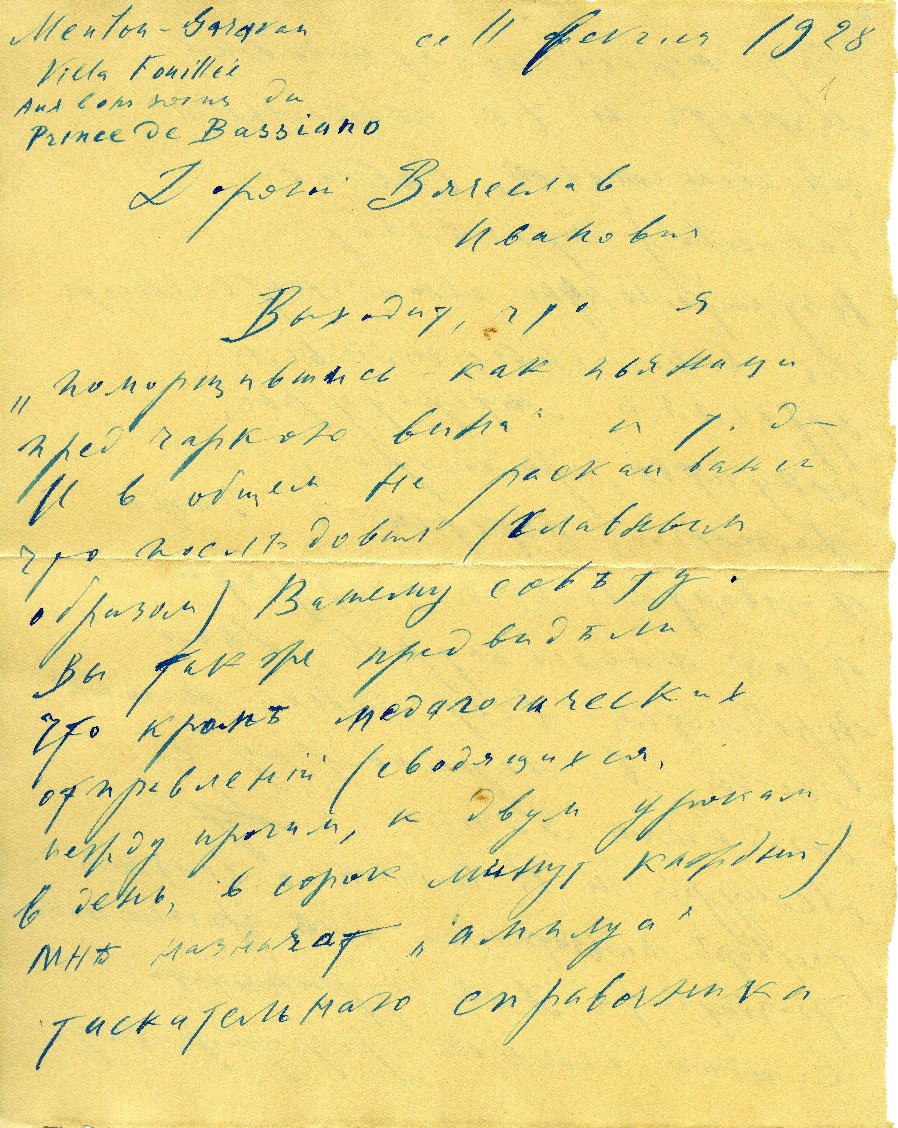 Menton-Garavan
се 11 февраля 1928
1
Villa Fouillée
Aux bons soins du
Prince de Bassiano
Дорогой Вячеслав
Иванович
Выходит, что я
„поморщившись как пьяница
пред чаркою вина" и т. д-
И в общем не раскаиваюсь
что послѣдовал (главным
образом) Вашему совѣту.
Вы также предвидѣли
что кромѣ педагогических
отправленiй (сводящихся,
между прочим, к двум урокам
в день, в сорок минут каждый)
мнѣ назначат „амплуа"
справочника